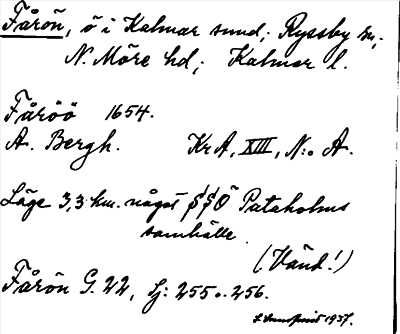 Fårön, ö i Kalmar sund; Ryssby sn;
N. Möre hd; Kalmar l.
Fåröö 1654.
A. Bergh. KrA, XIII, N:o A.
Läge 3,3 km. något SSO Pataholms
samhälle
(Vänd!)
Fårön G. 22, Sj: 255 o. 256.
1937.